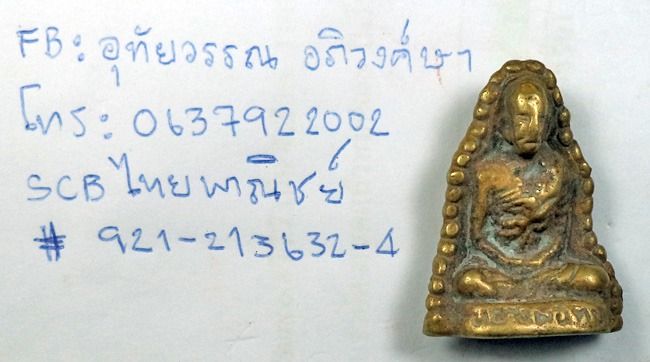 FB: อุทัยวรรณ อภิวงค์ษา
โทร: 0637922002
SCB ไทยพาณิชย์
# 921-213632-4